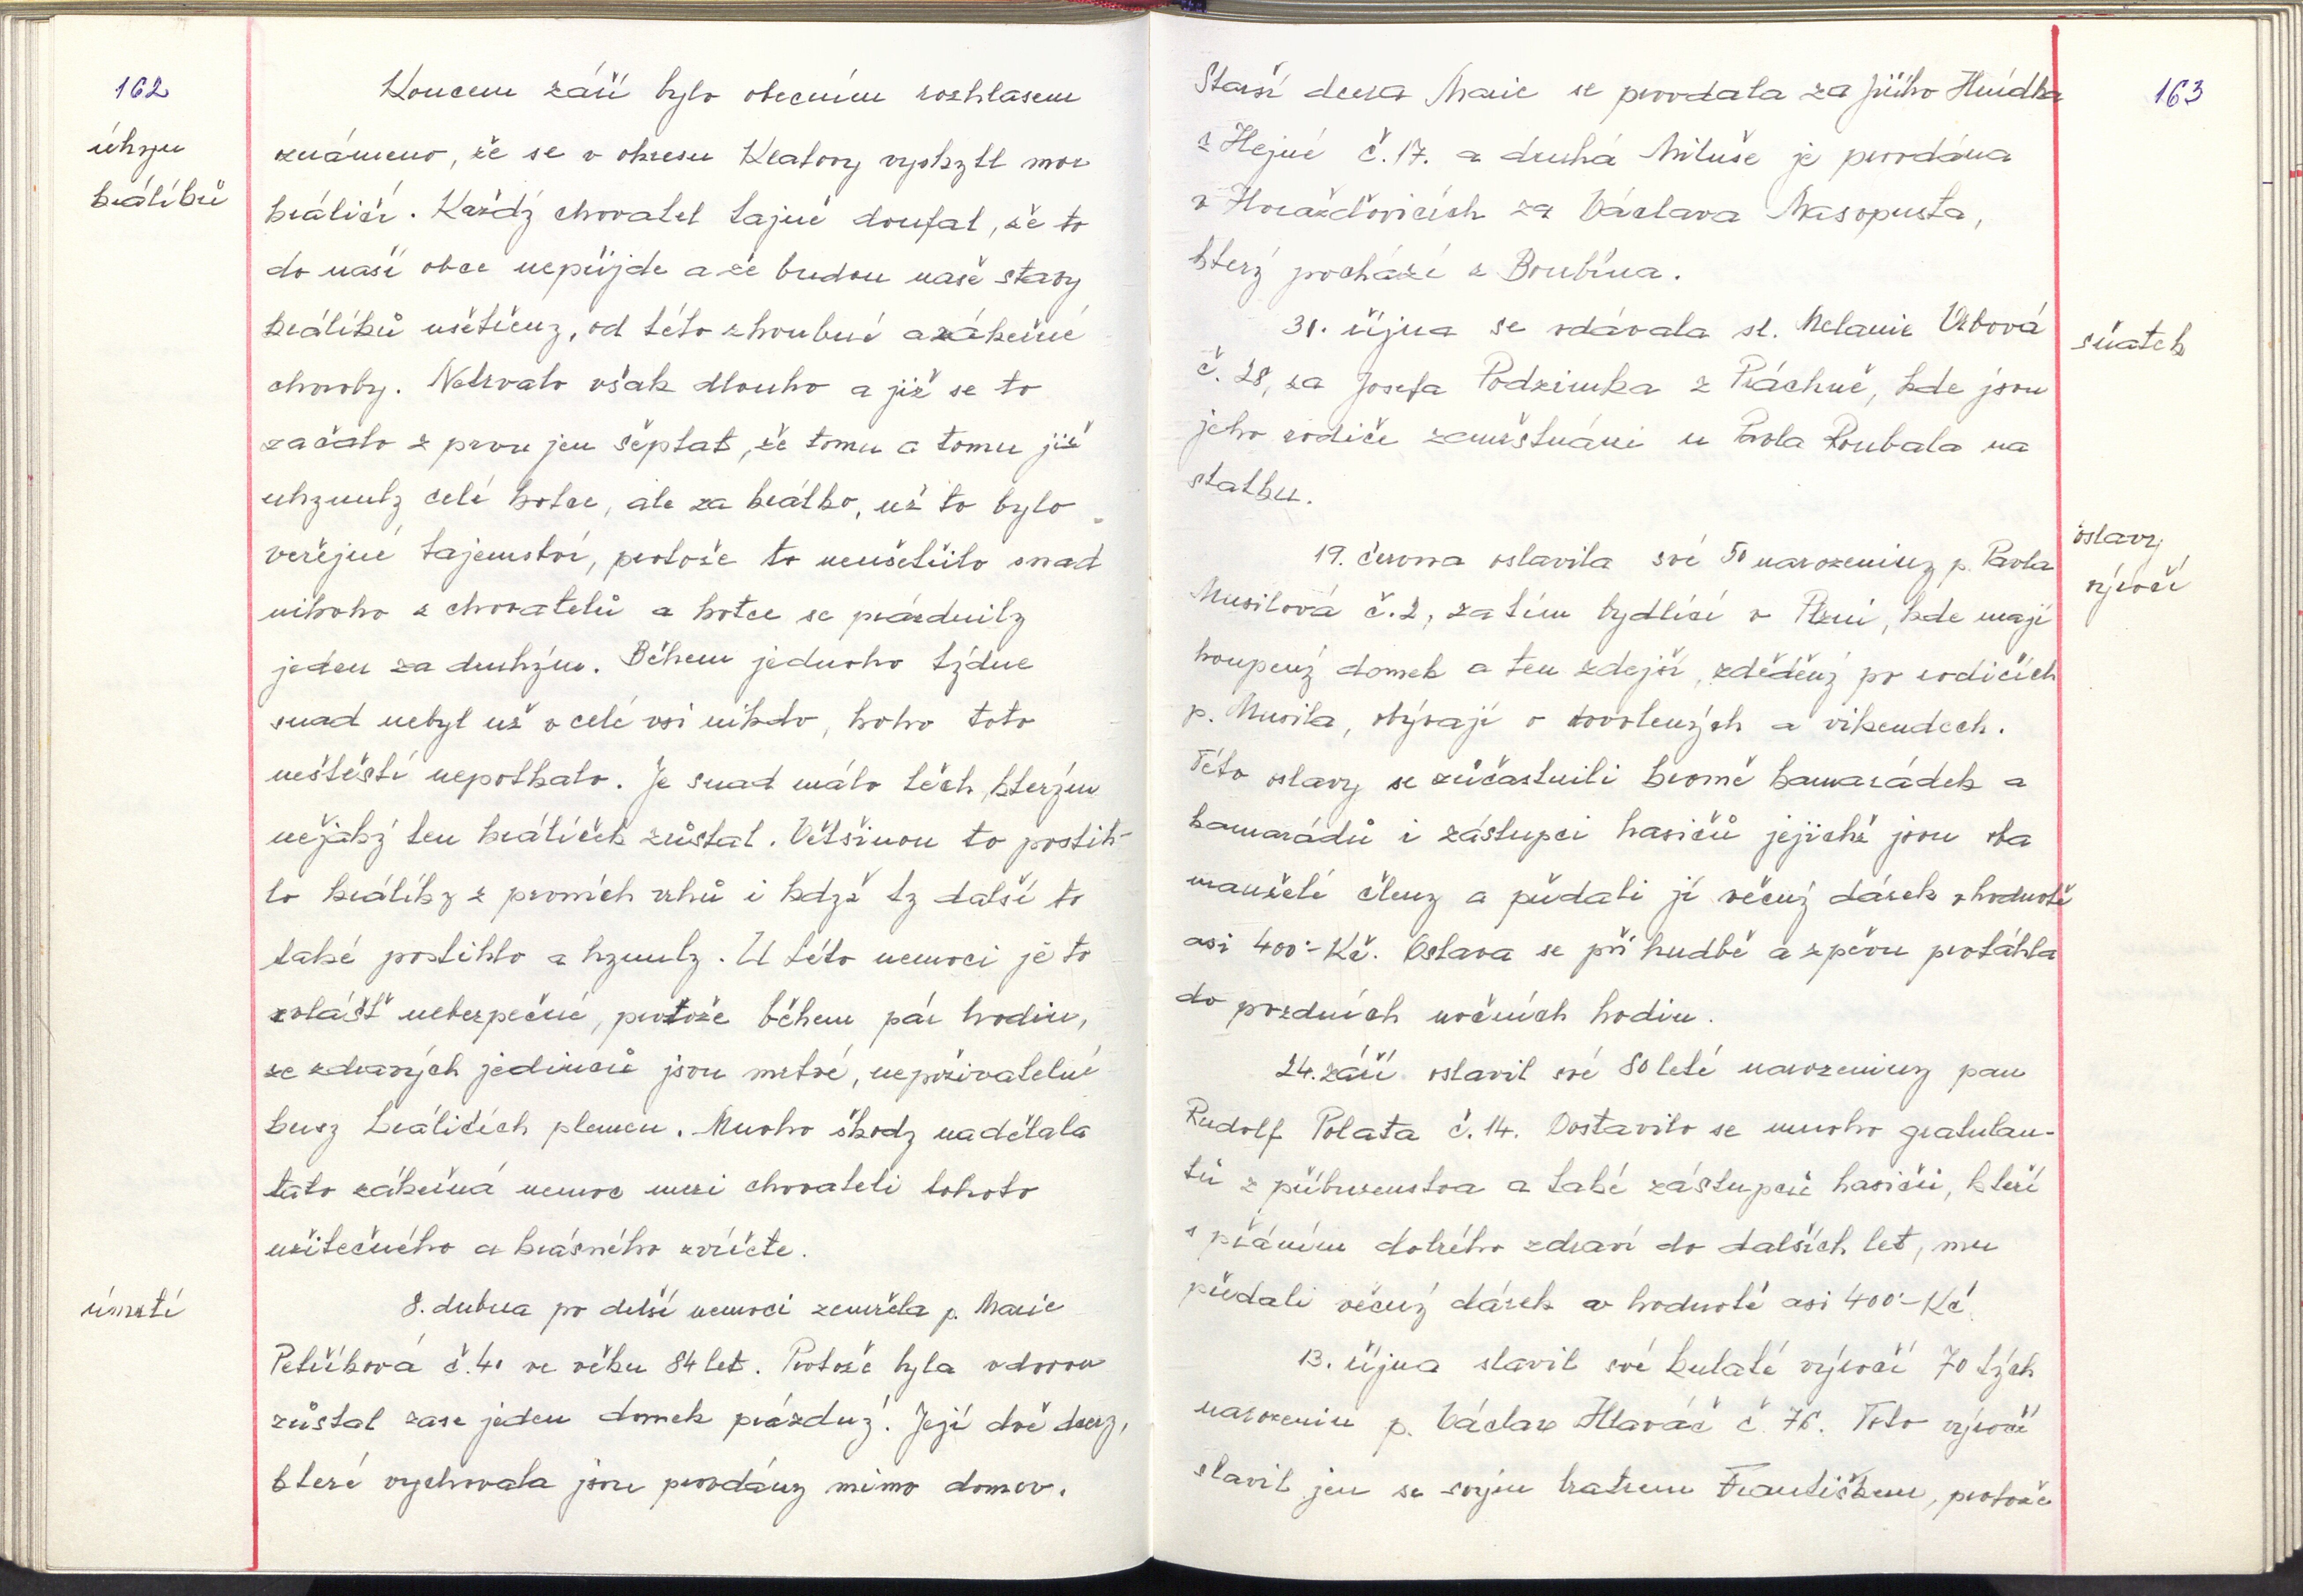 162
úhyn
králíků
Koncem září bylo obecním rozhlasem
známeno, že se v okresu Klatovy vyskytl mor
králičí. Každý chovatel tajně doufal, že to
do naší obce nepřijde a že budou naše stavy
králíků ušetřeny, od této zhoubné a zákeřné
choroby. Netrvalo však dlouho a již se to
začalo z prvu jen šeptat, že tomu a tomu již
uhynuly celé kotce, ale za krátko, už to bylo
veřejné tajemství, protože to neušetřilo snad
nikoho z chovatelů a kotce se prázdnily
jeden za druhým. Během jednoho týdne
snad nebyl už v celé vsi nikdo, koho toto
neštěstí nepotkalo. Je snad málo těch, kterým
nějaký ten králíček zůstal. Většinou to postih-
lo králíky z prvních vrhů i když ty další to
také postihlo a hynuly. U této nemoci je to
zvlášť nebezpečné, protože během pár hodin,
ze zdravých jedinců jsou mrtvé, nepoživatelné
kusy králičích plemen. Mnoho škody nadělala
tato zákeřná nemoc mezi chovateli tohoto
užitečného a krásného zvířete.
úmrtí
8. dubna po delší nemoci zemřela p. Marie
Petříková č. 40 ve věku 84 let. Protože byla vdovou
zůstal zase jeden domek prázdný. Její dvě dcery,
které vychovala jsou provdány mimo domov.
163
Starší dcera Marie se provdala za Jiřího Hnídka
z Hejné č. 17. a druhá Miluše je provdána
v Horažďovicích za Václava Masopusta,
který pochází z Boubína.
sňatek
31. října se vdávala sl. Melanie Vrbová
č. 28, za Josefa Podzimka z Práchně, kde jsou
jeho rodiče zaměstnáni u Pavla Roubala na
statku.
oslavy
výročí
19. června oslavila své 50 narozeniny p. Pavla
Musilová č. 2, zatím bydlící v Plzni, kde mají
koupený domek a ten zdejší, zděděný po rodičích
p. Musila, obývají o dovolených a vikendech.
Této oslavy se zúčastnili kromě kamarádek a
kamarádů i zástupci hasičů jejichž jsou oba
manželé členy a předali jí věcný dárek v hodnotě
asi 400.- Kč. Oslava se při hudbě a zpěvu protáhla
do pozdních nočních hodin.
24. září oslavil své 80 leté narozeniny pan
Rudolf Polata č. 14. Dostavilo se mnoho gratulan-
tů z příbuzenstva a také zástupci hasičů, kteří
s přáním dobrého zdraví do dalších let, mu
předali věcný dárek v hodnotě asi 400.- Kč.
13. října slavil své kulaté výročí 70 tých
narozenin p. Václav Hlaváč č. 76. Toto výročí
slavil jen se svým bratrem Františkem, protože